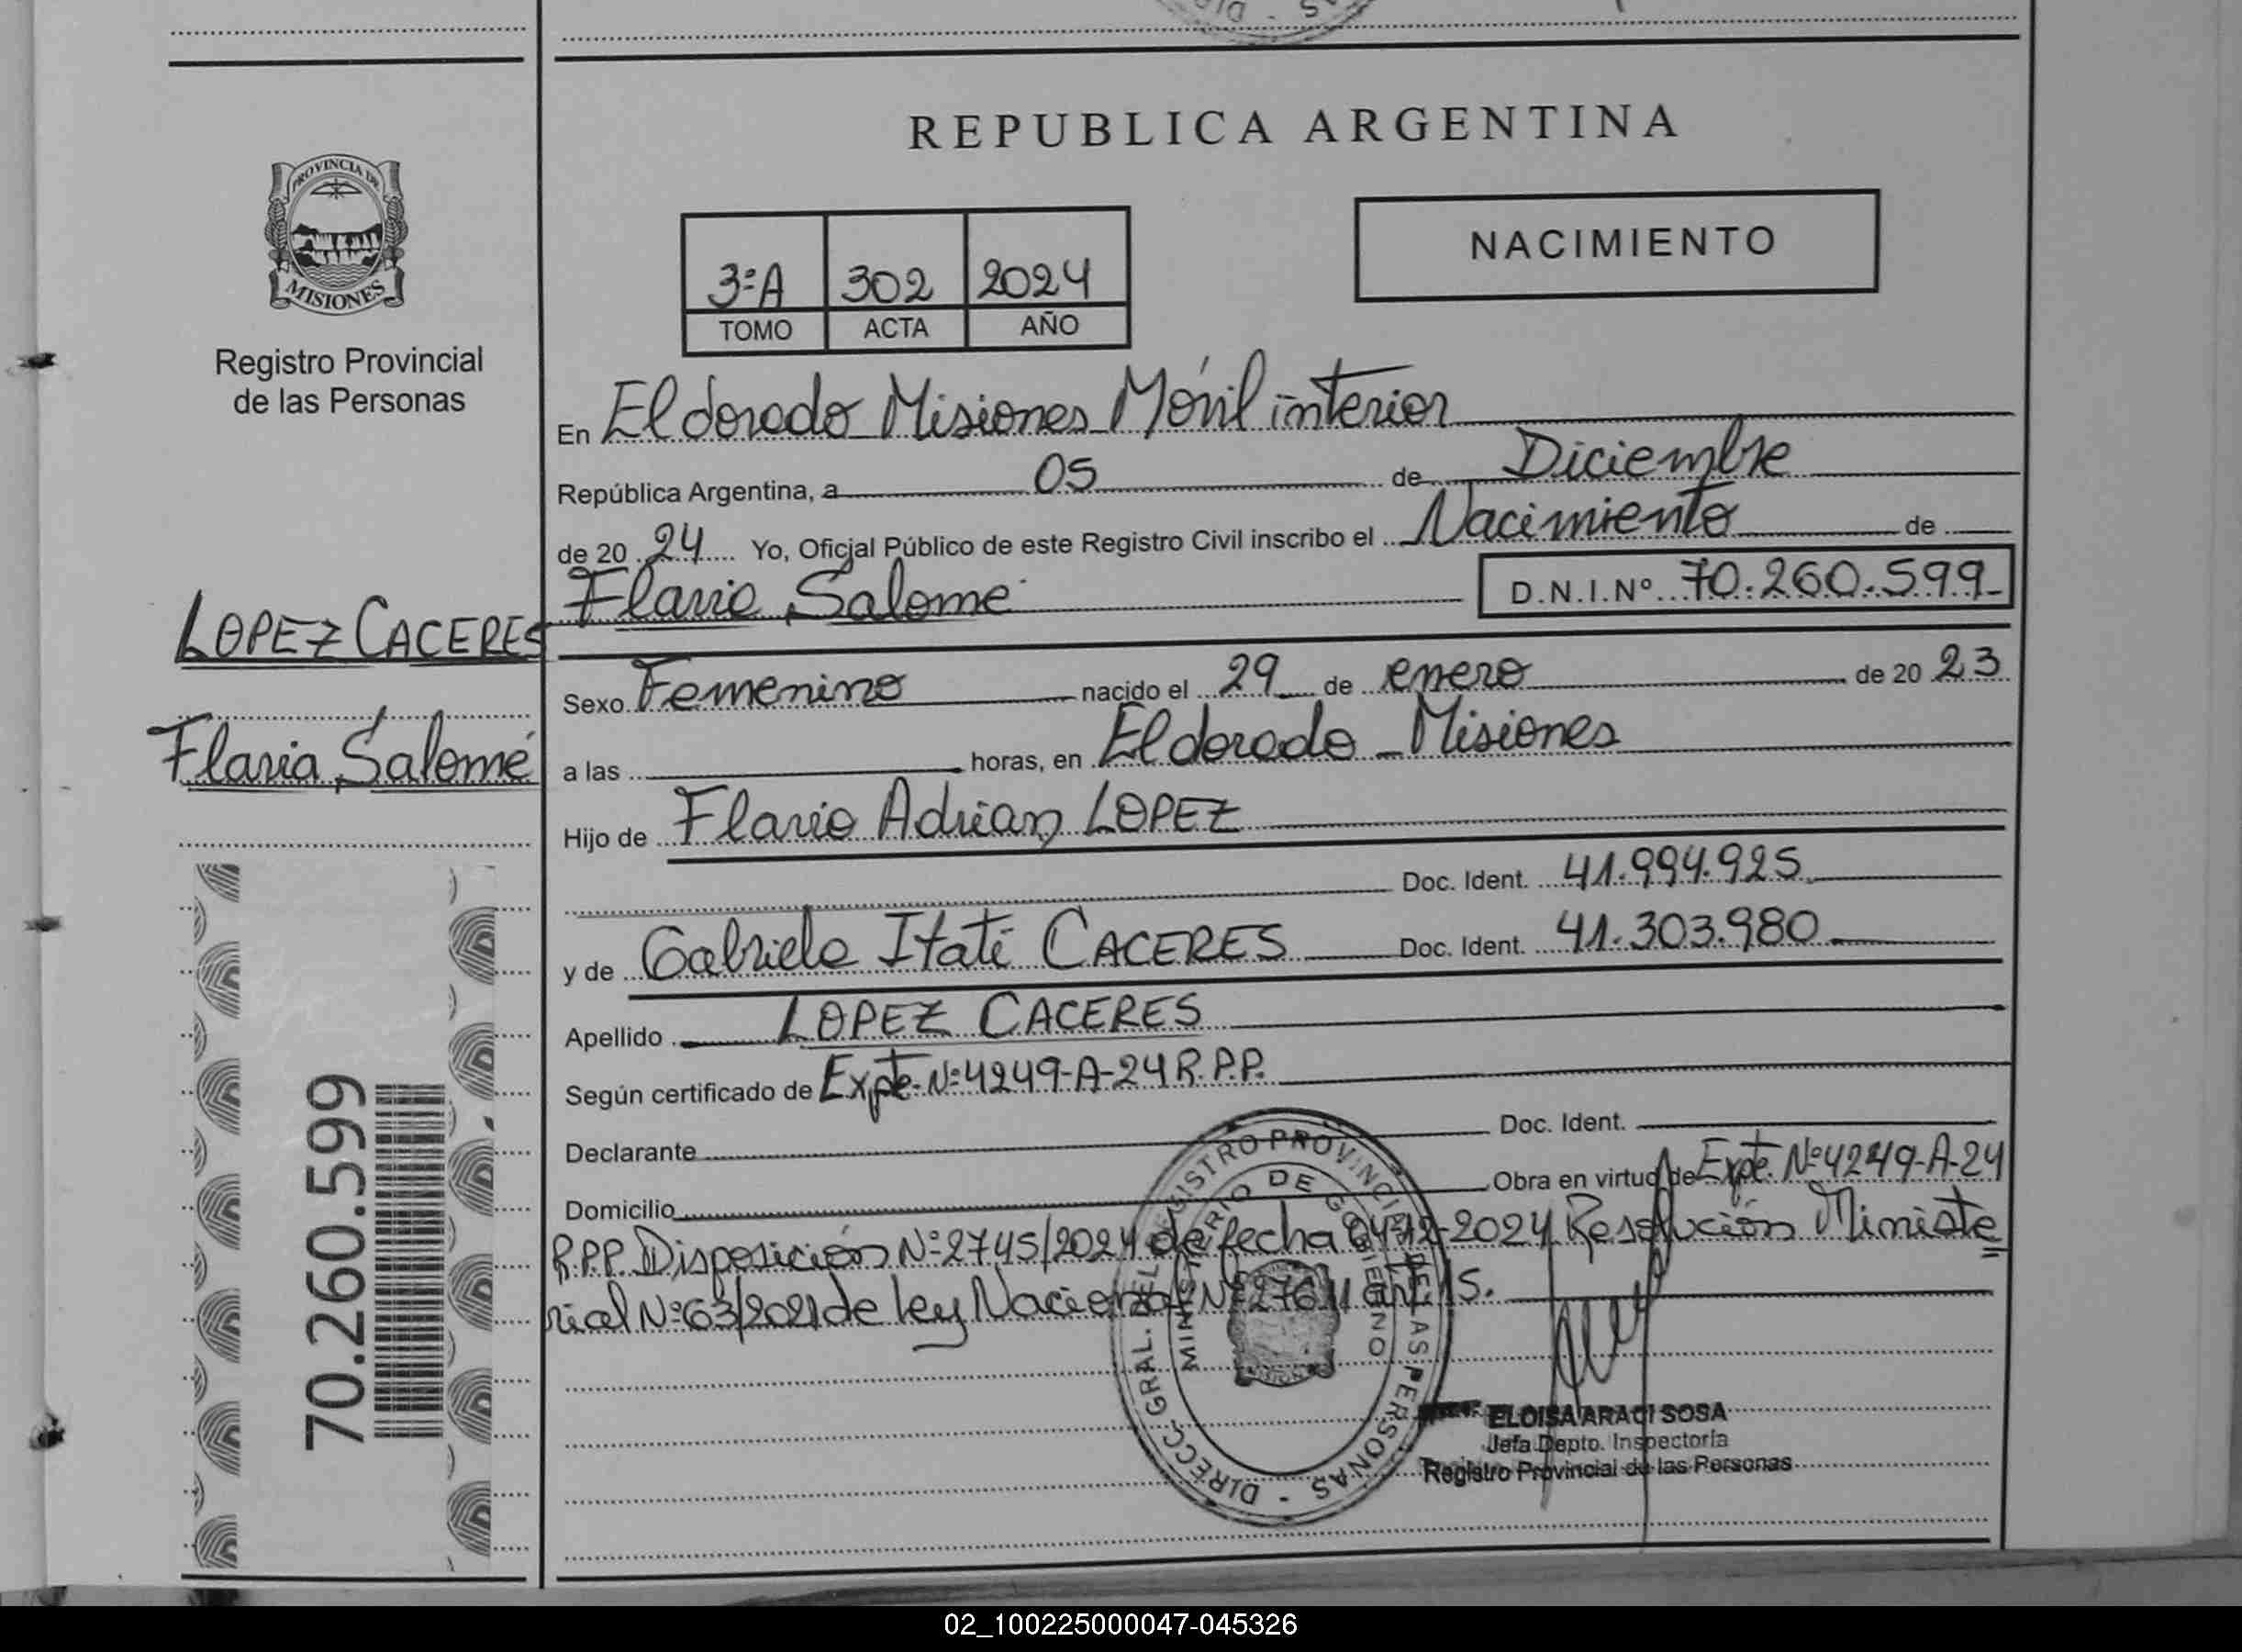 REPUBLICA ARGENTINA
PROVINCIA DE
MISIONES
Registro Provincial
de las Personas
NACIMIENTO
3ºA 302 2024
TOMO ACTA AÑO
En Eldorado Misiones Móvil interior
República Argentina, a 05 de Diciembre
de 20 24 Yo, Oficial Público de este Registro Civil inscribo el Nacimiento de
LOPEZ CACERES
Flavia Salomé
Flavia Salomé
D.N.I.Nº 70.260.599
Sexo Femenino nacido el 29 de enero de 20 23
a las horas, en Eldorado Misiones
Hijo de Flavio Adrian LOPEZ
Doc. Ident. 41.994.925
y de Gabriela Itatí CACERES Doc. Ident. 41.303.980
Apellido LOPEZ CACERES
Según certificado de Expte. Nº 4249-A-24 R.P.P.
Declarante Doc. Ident.
Domicilio Obra en virtud de Expte. Nº 4249-A-24
R.P.P. Disposición Nº 2745/2024 de fecha 04-12-2024 Resolución Ministe
rial Nº 63/2021 de ley Nacional Nº 27611 art. 15.
70.260.599
DIRECC. GRAL. DEL REGISTRO PROVINCIAL DE LAS PERSONAS -
MINISTERIO DE GOBIERNO
ELOISA ARACI SOSA
Jefa Depto. Inspectoría
Registro Provincial de las Personas
02_100225000047-045326